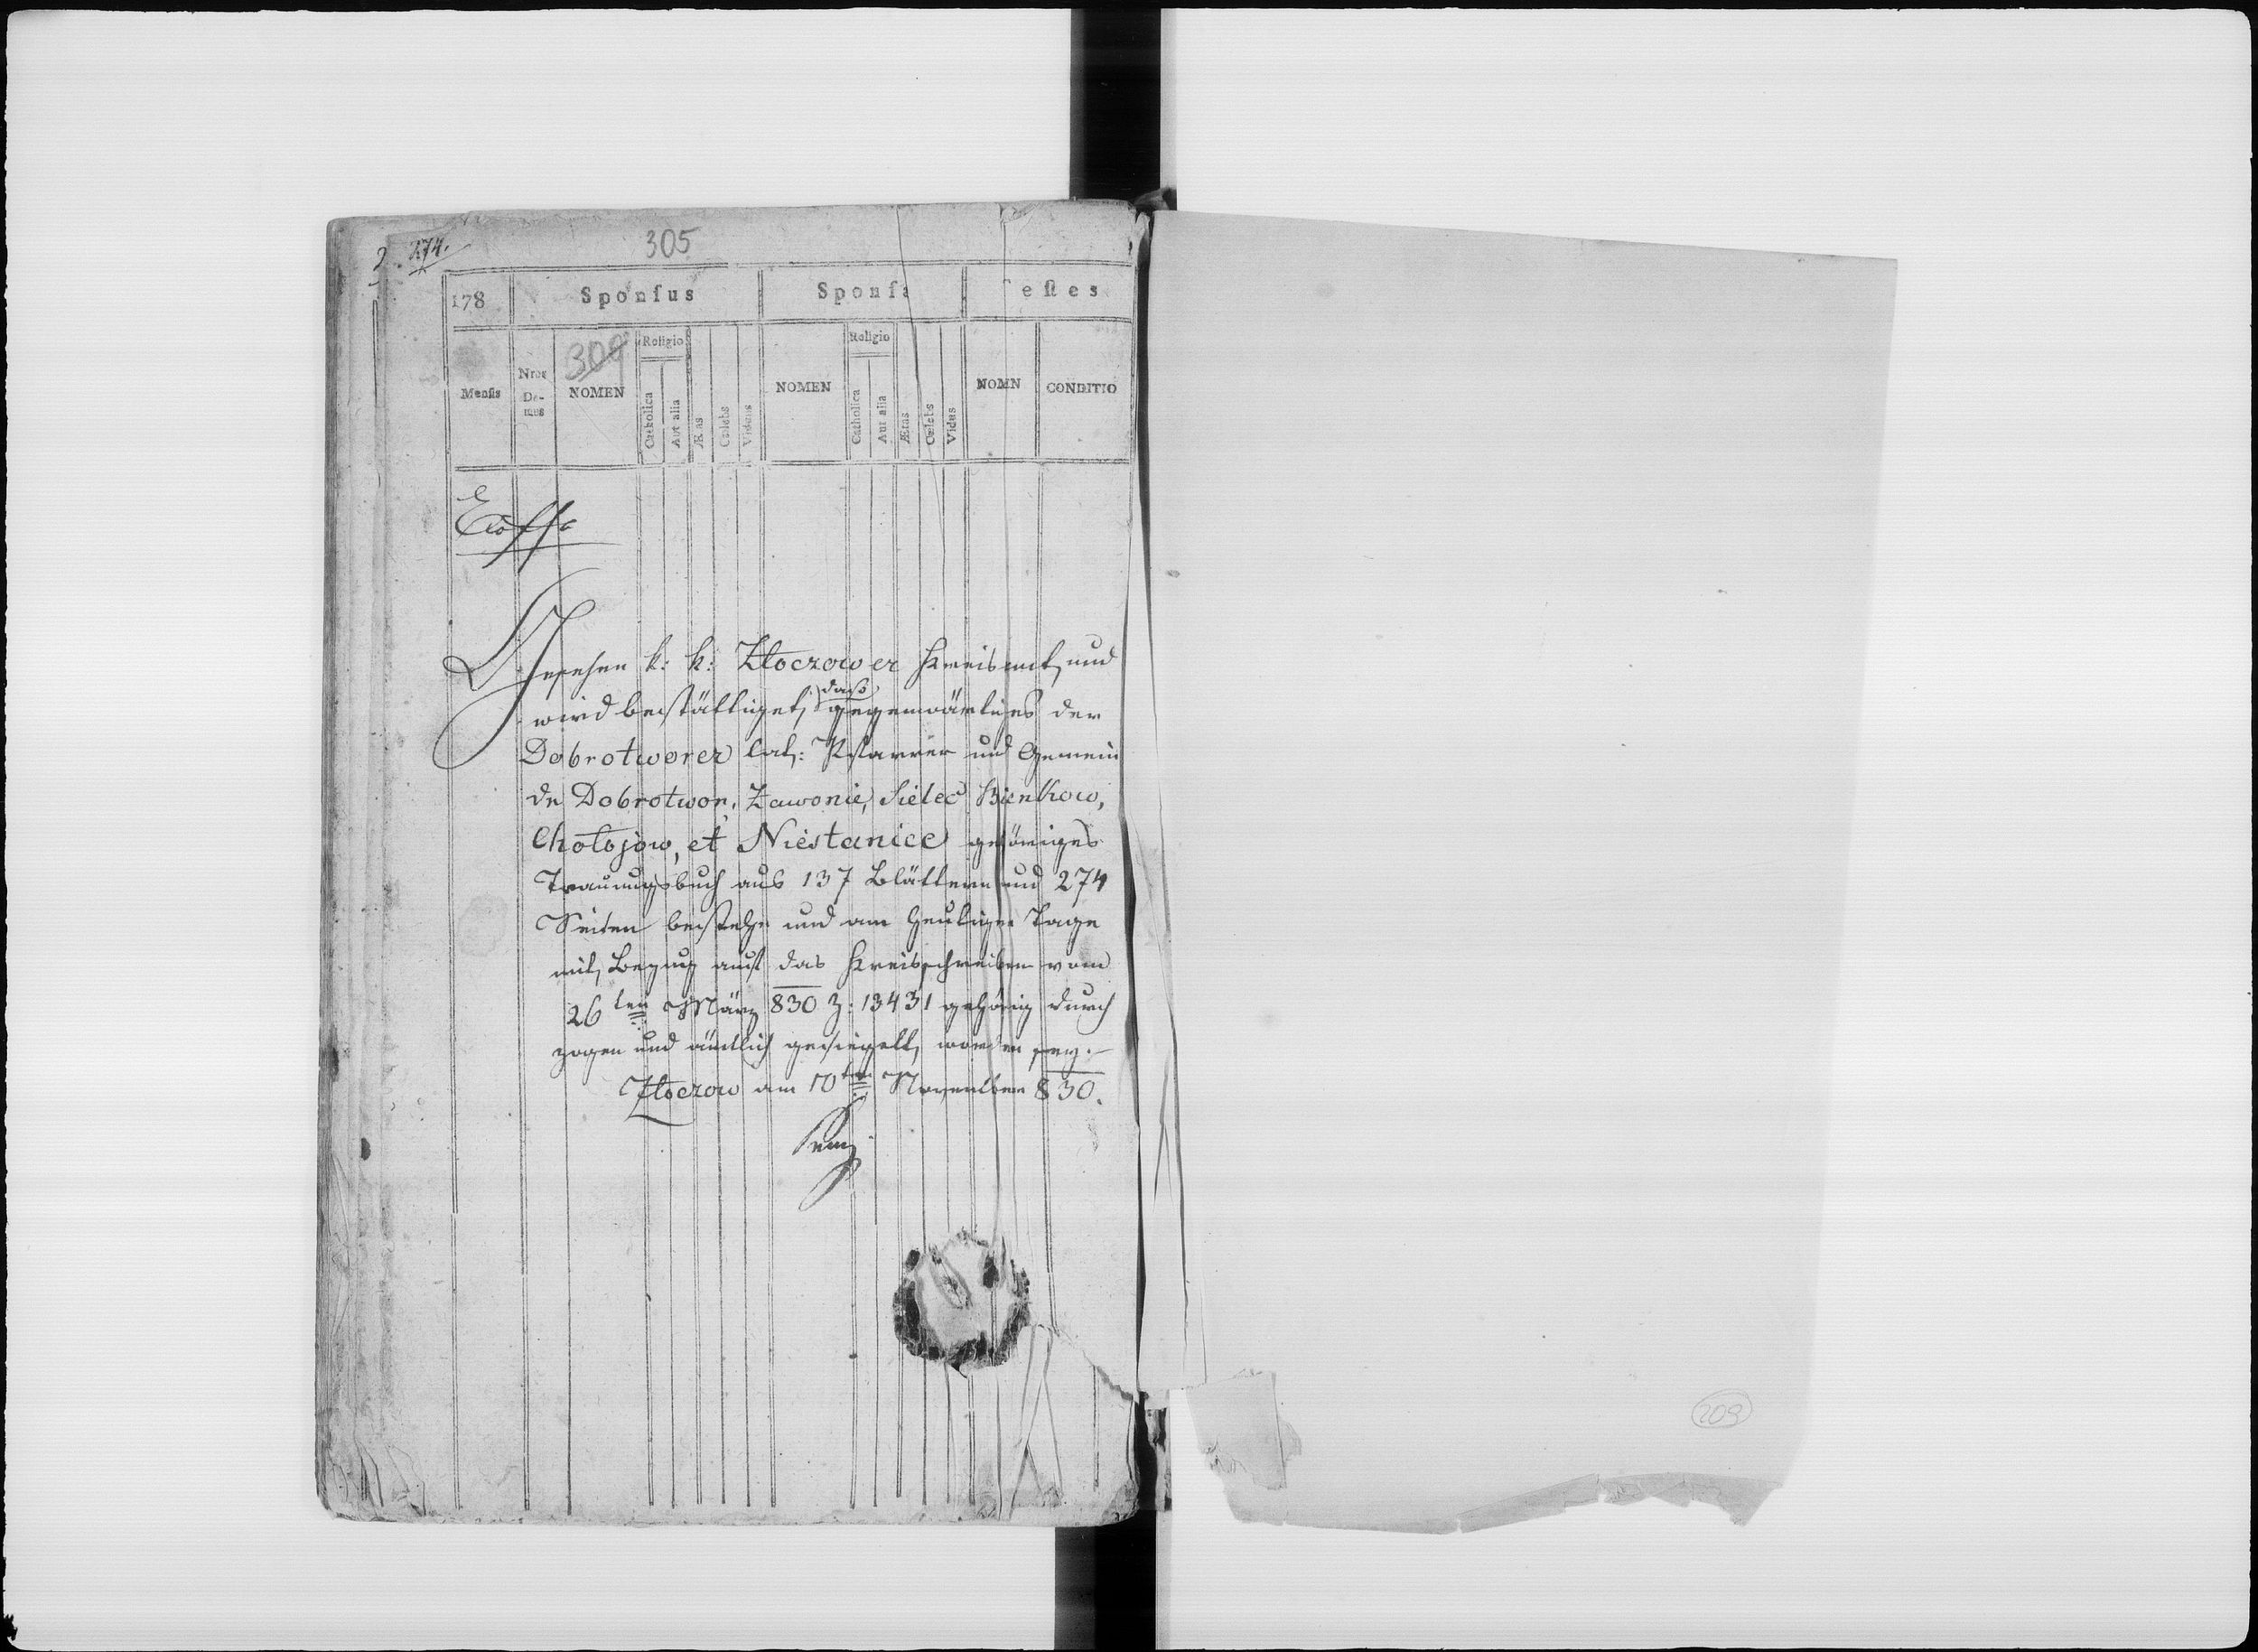 274.
305
178 Sponſus Sponſa eſtes
309
Menſis Nros Do- mus NOMEN Religio Catholica Aut alia Ætas Cælebs Viduus NOMEN Religio Catholica Aut alia Ætas Cælebs Vidua NOMN CONDITIO
Gesehen k: k: Złoczower Kreisamt, und
wird bestättiget, daß gegenwärtiges der
Dobrotworer lat: Pfarrer und Gemein
de Dobrotwor, Zawonie, Sielec Bienkow,
Chołojow, et Niestanice gehöriges
Trauungsbuch aus 137 Blättern und 274
Seiten bestehe und am heutigen Tage
mit Bezug auf das Kreisschreiben vom
26ten März 830 Z: 13431 gehörig durch
zogen und ämtlich gesiegelt worden sey.–
Złoczow am 10ten November 830.
209